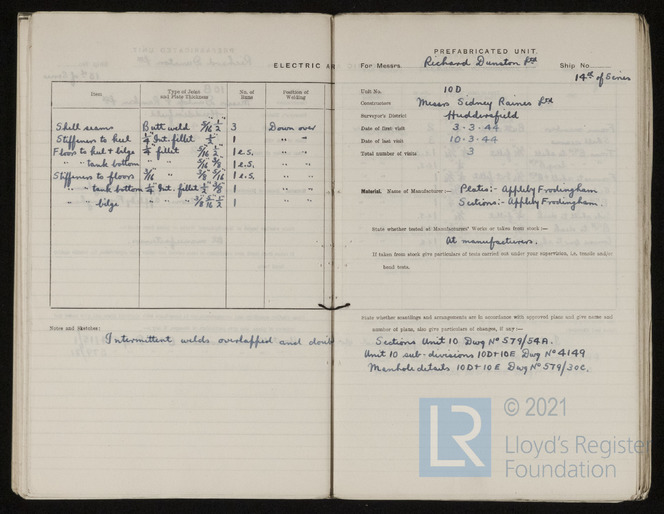 ELECTRIC A
Item
Type of Joint and Plate Thickness
No. of Runs
Position of Welding
Shell seams Butt weld 5/16" 1/2" 3 Down over
Stiffeners to keel 1/4" Int. fillet 1 " "
Floors to kul + bilge 1/4" fillet 5/16" 1/2" 1 e.s. " "
" " tank bottom " " 5/16" 3/8" 1 e.s. " "
Stiffeners to floors 3/16" " 3/8" 5/16" 1 e.s. " "
" " tank bottom 1/4" Int. fillet 3/8" 1 " "
" " bilge " " " 3/8" 5/16" 1/2" 1 " "
Notes and Sketches:
Intermittent welds overlapped and doub
PREFABRICATED UNIT.
For Messrs. Richard Dunston Ltd Ship No.
14th of Series
Unit No. 10D
Constructors Messrs Sidney Raines Ltd
Surveyor's District Huddersfield
Date of first visit 3-3-44
Date of last visit 10-3-44
Total number of visits 3
Material. Name of Manufacturer:— Plates:- Appleby Frodingham
Sections:- Appleby Frodingham.
State whether tested at Manufacturers' Works or taken from stock:—
At manufacturers.
If taken from stock give particulars of tests carried out under your supervision, i.e, tensile and/or
bend tests.
State whether scantlings and arrangements are in accordance with approved plans and give name and
number of plans, also give particulars of changes, if any:—
Sections Unit 10 Dwg No 579/54A.
Unit 10 sub-divisions 10D+10E Dwg No 4149
Manhole details 10D+10E Dwg No 579/30C.
LR
© 2021
Lloyd's Register
Foundation